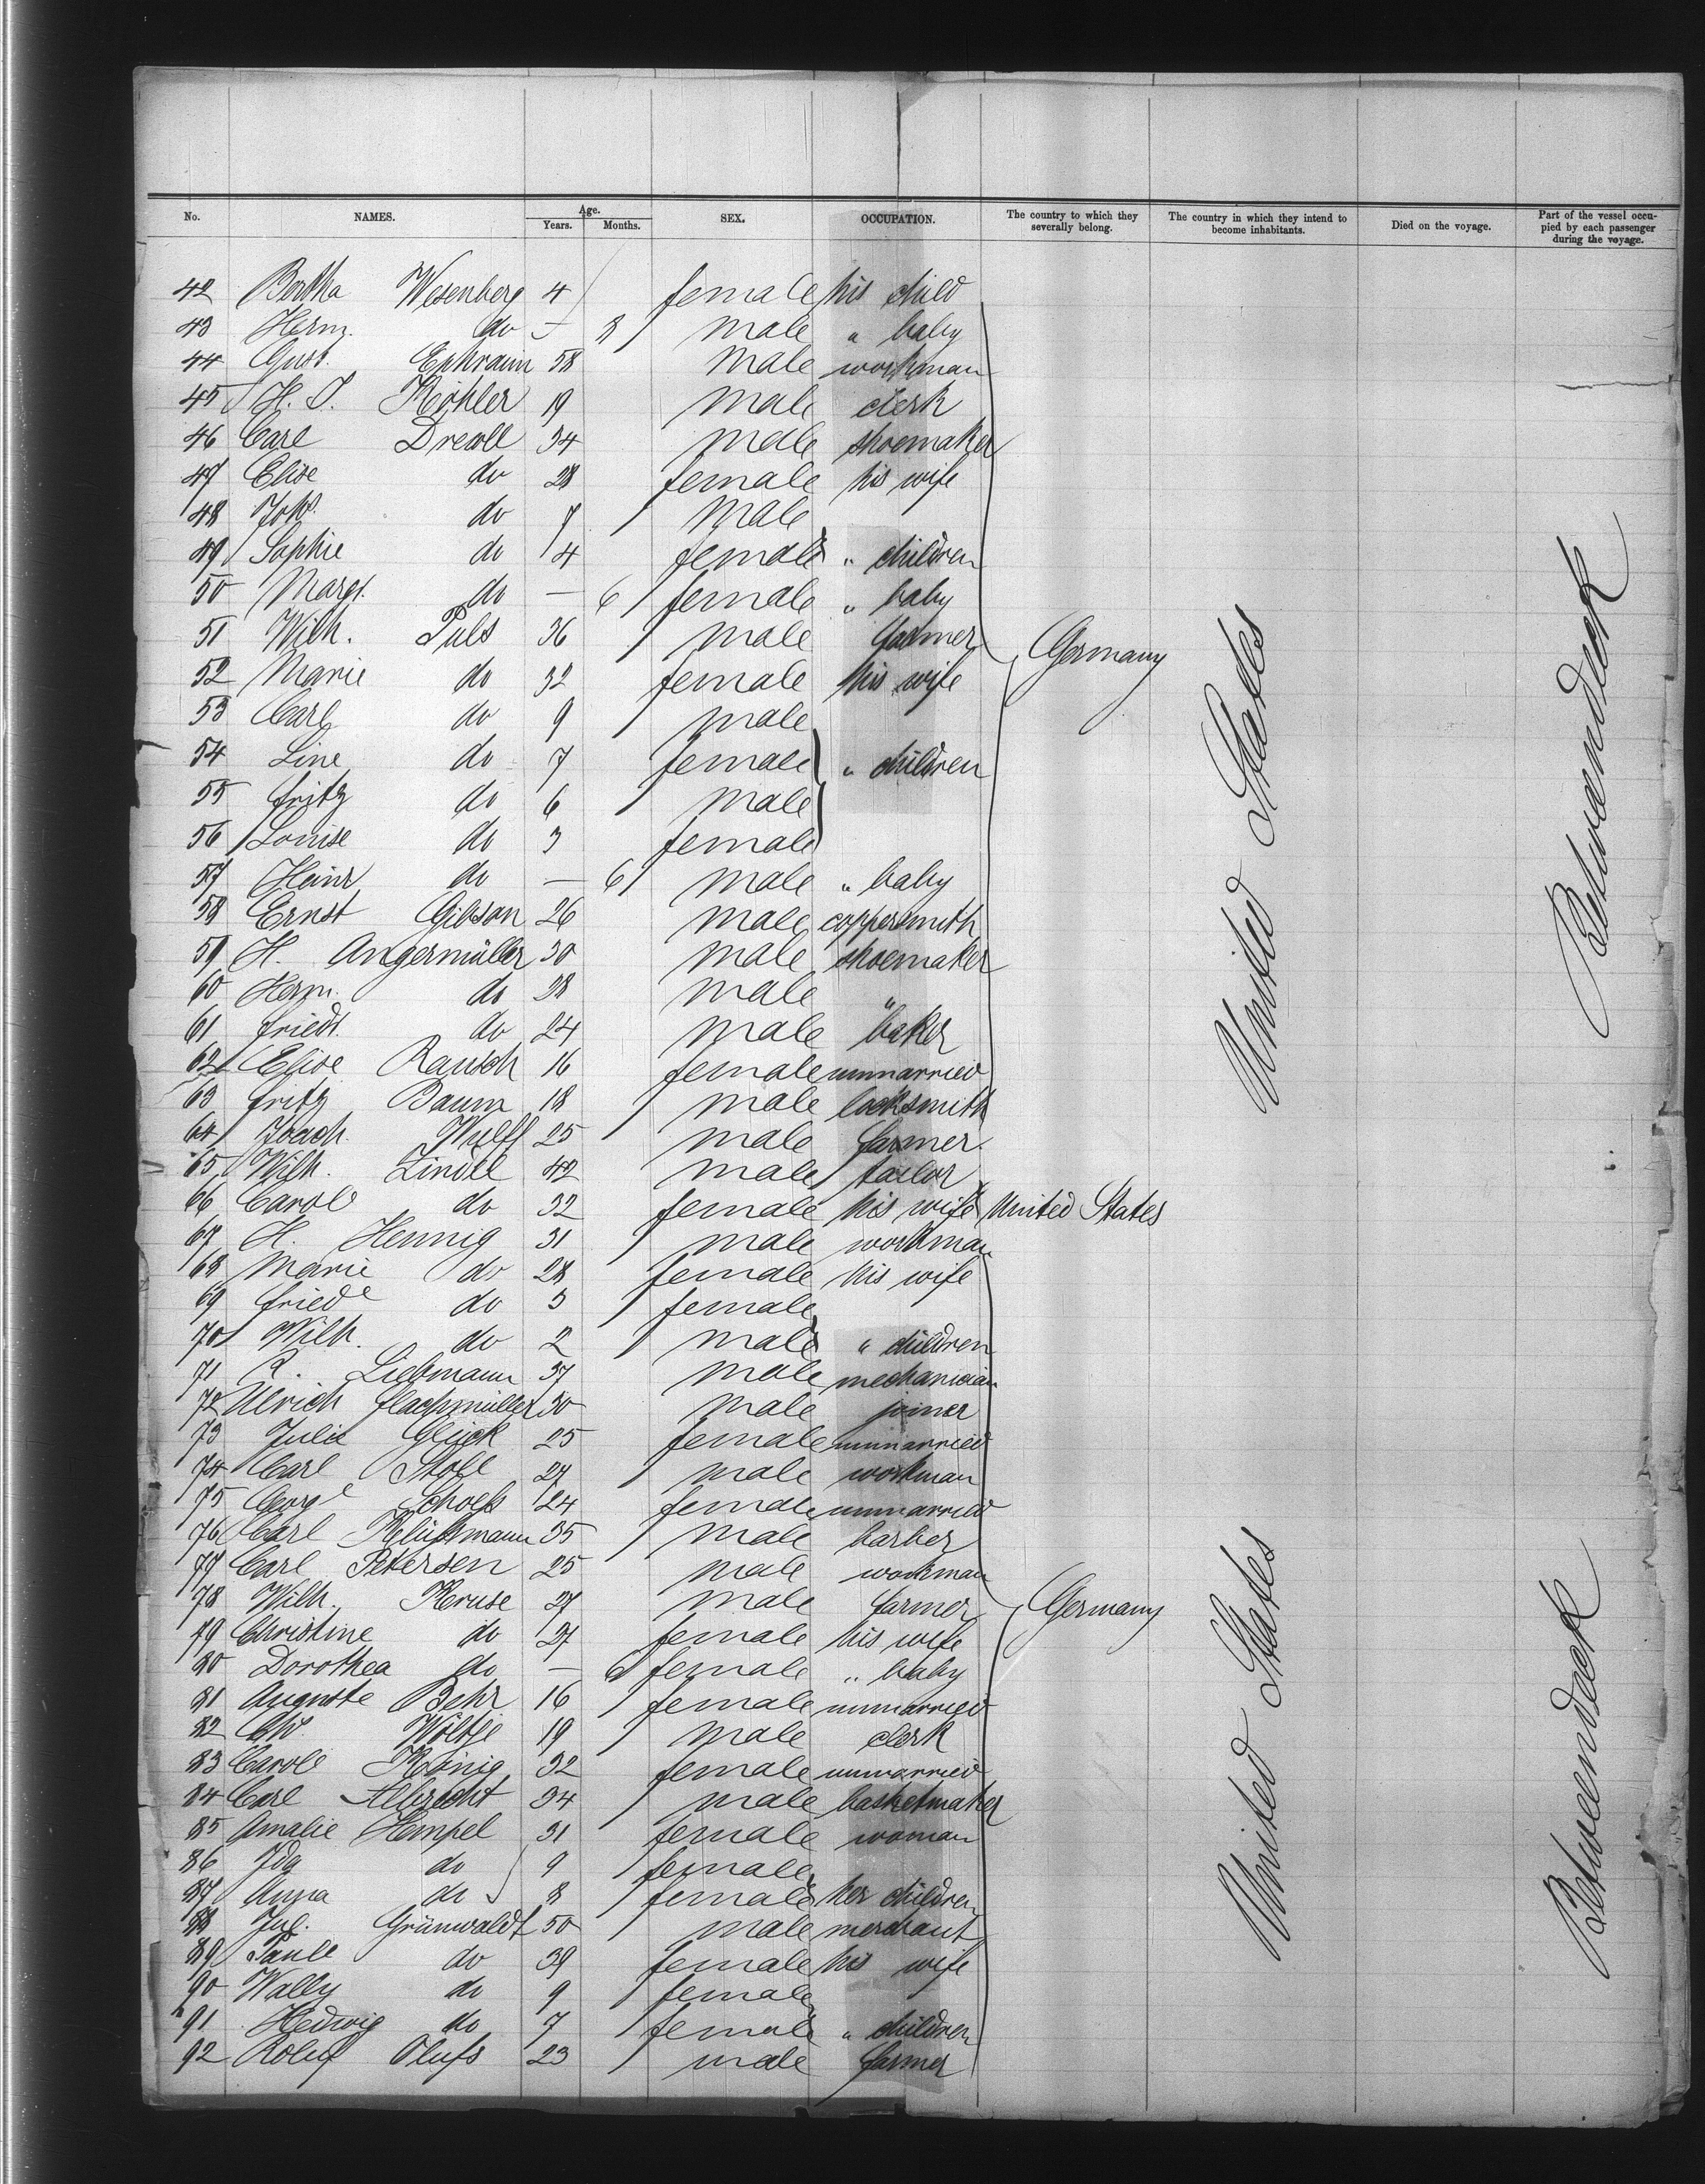 No. NAMES. Age. Years. Months. SEX. OCCUPATION. The country to which they severally belong. The country in which they intend to become inhabitants. Died on the voyage. Part of the vessel occupied by each passenger during the voyage.
42 Bertha Wesenberg 4 female his child
43 Herm. do — 8 male " baby
44 Gust. Ephraim 58 male workman
45 H. J. Köhler 19 male clerk
46 Carl Drewll 34 male shoemaker
47 Elise do 28 female his wife
48 Johs. do 7 male
49 Sophie do 4 female " children
50 Margt. do — 6 female " baby
51 Wilh. Puls 36 male farmer Germany
52 Marie do 32 female his wife
53 Carl do 9 male
54 Line do 7 female " children
55 Fritz do 6 male
56 Louise do 3 female
57 Heinr do — 6 male " baby
58 Ernst Gibson 26 male coppersmith
59 H. Angermüller 30 male shoemaker
60 Herm. do 28 male "
61 Friedr. do 24 male baker
62 Elise Rausch 16 female unmarried
63 Fritz Baum 18 male locksmith
64 Joach. Wulff 25 male farmer
65 Wilh. Lindel 42 male tailor
66 Carol do 32 female his wife United States
67 H. Hennig 31 male workman
68 Marie do 28 female his wife
69 Friede do 3 female
70 Wilh. do 2 male " children
71 R. Liebmann 37 male mechanician
72 Ulrich Flachmüller 30 male joiner
73 Julie Glück 25 female unmarried
74 Carl Stoll 27 male workman
75 Georgl Schoels 24 female unmarried
76 Carl Klüssmann 35 male barber
77 Carl Petersen 25 male workman
78 Wilh. Kruse 27 male farmer Germany
79 Christine do 27 female his wife
80 Dorothea do — 6 female " baby
81 Auguste Behr 16 female unmarried
82 Chr. Wöltje 19 male clerk
83 Carole König 32 female unmarried
84 Carl Albrecht 34 male basketmaker
85 Amalie Hempel 31 female woman
86 Ida do 9 female
87 Anna do 8 female her children
88 Jul. Grünwaldt 50 male merchant
89 Paule do 39 female his wife
90 Wally do 9 female
91 Hedwig do 7 female " children
92 Roluf Olufs 23 male farmer
United States
Betweendeck
United States
Betweendeck